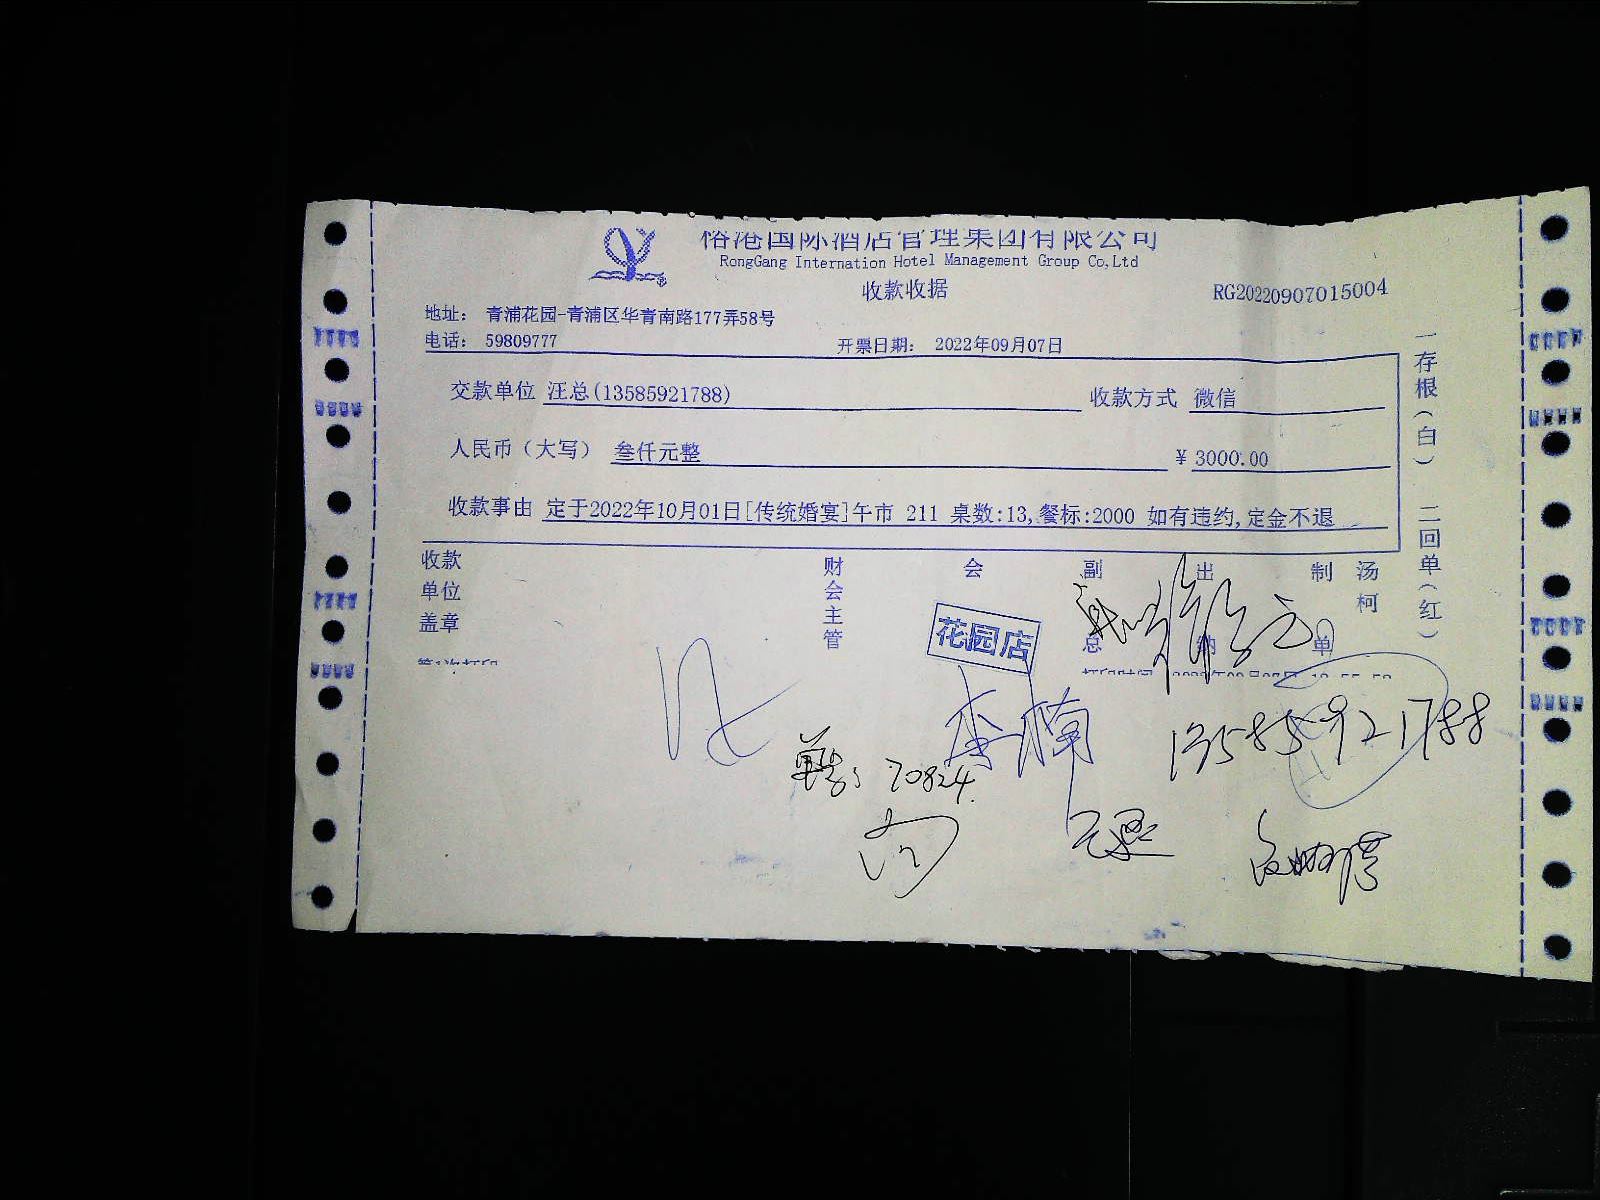 榕港国际酒店管理集团有限公司
RongGang Internation Hotel Management Group Co,Ltd
收款收据
RG20220907015004
地址： 青浦花园-青浦区华青南路177弄58号
电话： 59809777
开票日期： 2022年09月07日
交款单位 汪总(13585921788)
收款方式 微信
人民币（大写） 叁仟元整
¥ 3000.00
收款事由 定于2022年10月01日[传统婚宴]午市 211 桌数:13,餐标:2000 如有违约,定金不退
一存根（白） 二回单（红）
收款单位盖章
财会主管
会
副总
出纳
制单
汤柯
花园店
第1次打印
李楠
13585921788
单号: 70824.